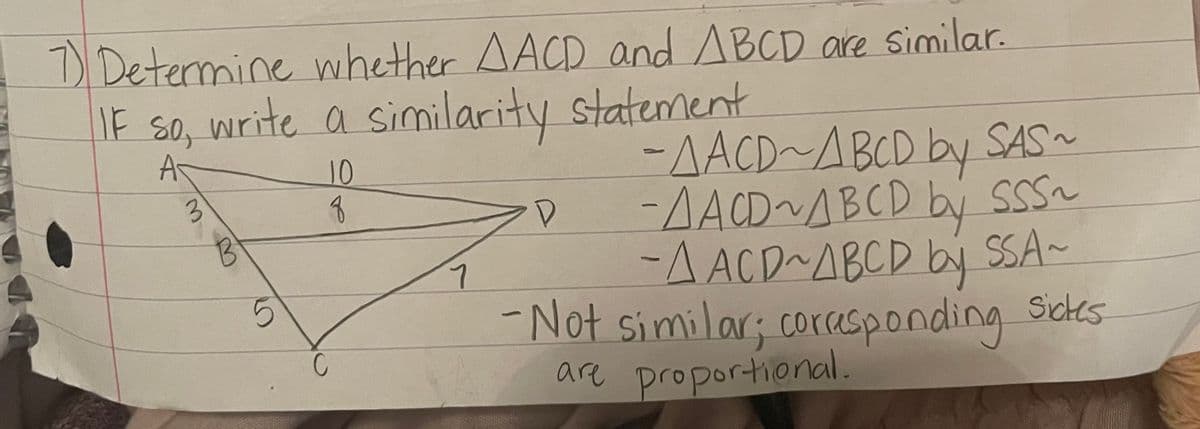 7) Determine whether ΔACD and ΔBCD are similar.
IF so, write a similarity statement
-ΔACD~ΔBCD by SAS~
A 10
3 8 D
-ΔACD~ΔBCD by SSS~
B
-ΔACD~ΔBCD by SSA~
7
5
-Not similar; corresponding sides
C
are proportional.